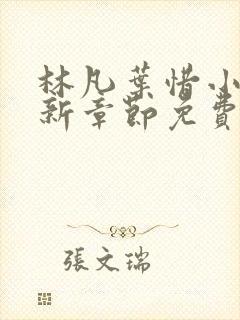 林凡葉惜小
新章節免費
張文瑞